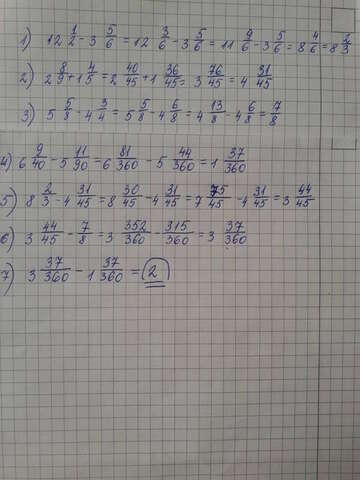 1) 12 1/2 - 3 5/6 = 12 3/6 - 3 5/6 = 11 9/6 - 3 5/6 = 8 4/6 = 8 2/3
2) 2 8/9 + 1 4/5 = 2 40/45 + 1 36/45 = 3 76/45 = 4 31/45
3) 5 5/8 - 4 3/4 = 5 5/8 - 4 6/8 = 4 13/8 - 4 6/8 = 7/8
4) 6 9/40 - 5 11/90 = 6 81/360 - 5 44/360 = 1 37/360
5) 8 2/3 - 4 31/45 = 8 30/45 - 4 31/45 = 7 75/45 - 4 31/45 = 3 44/45
6) 3 44/45 - 7/8 = 3 352/360 - 315/360 = 3 37/360
7) 3 37/360 - 1 37/360 = 2